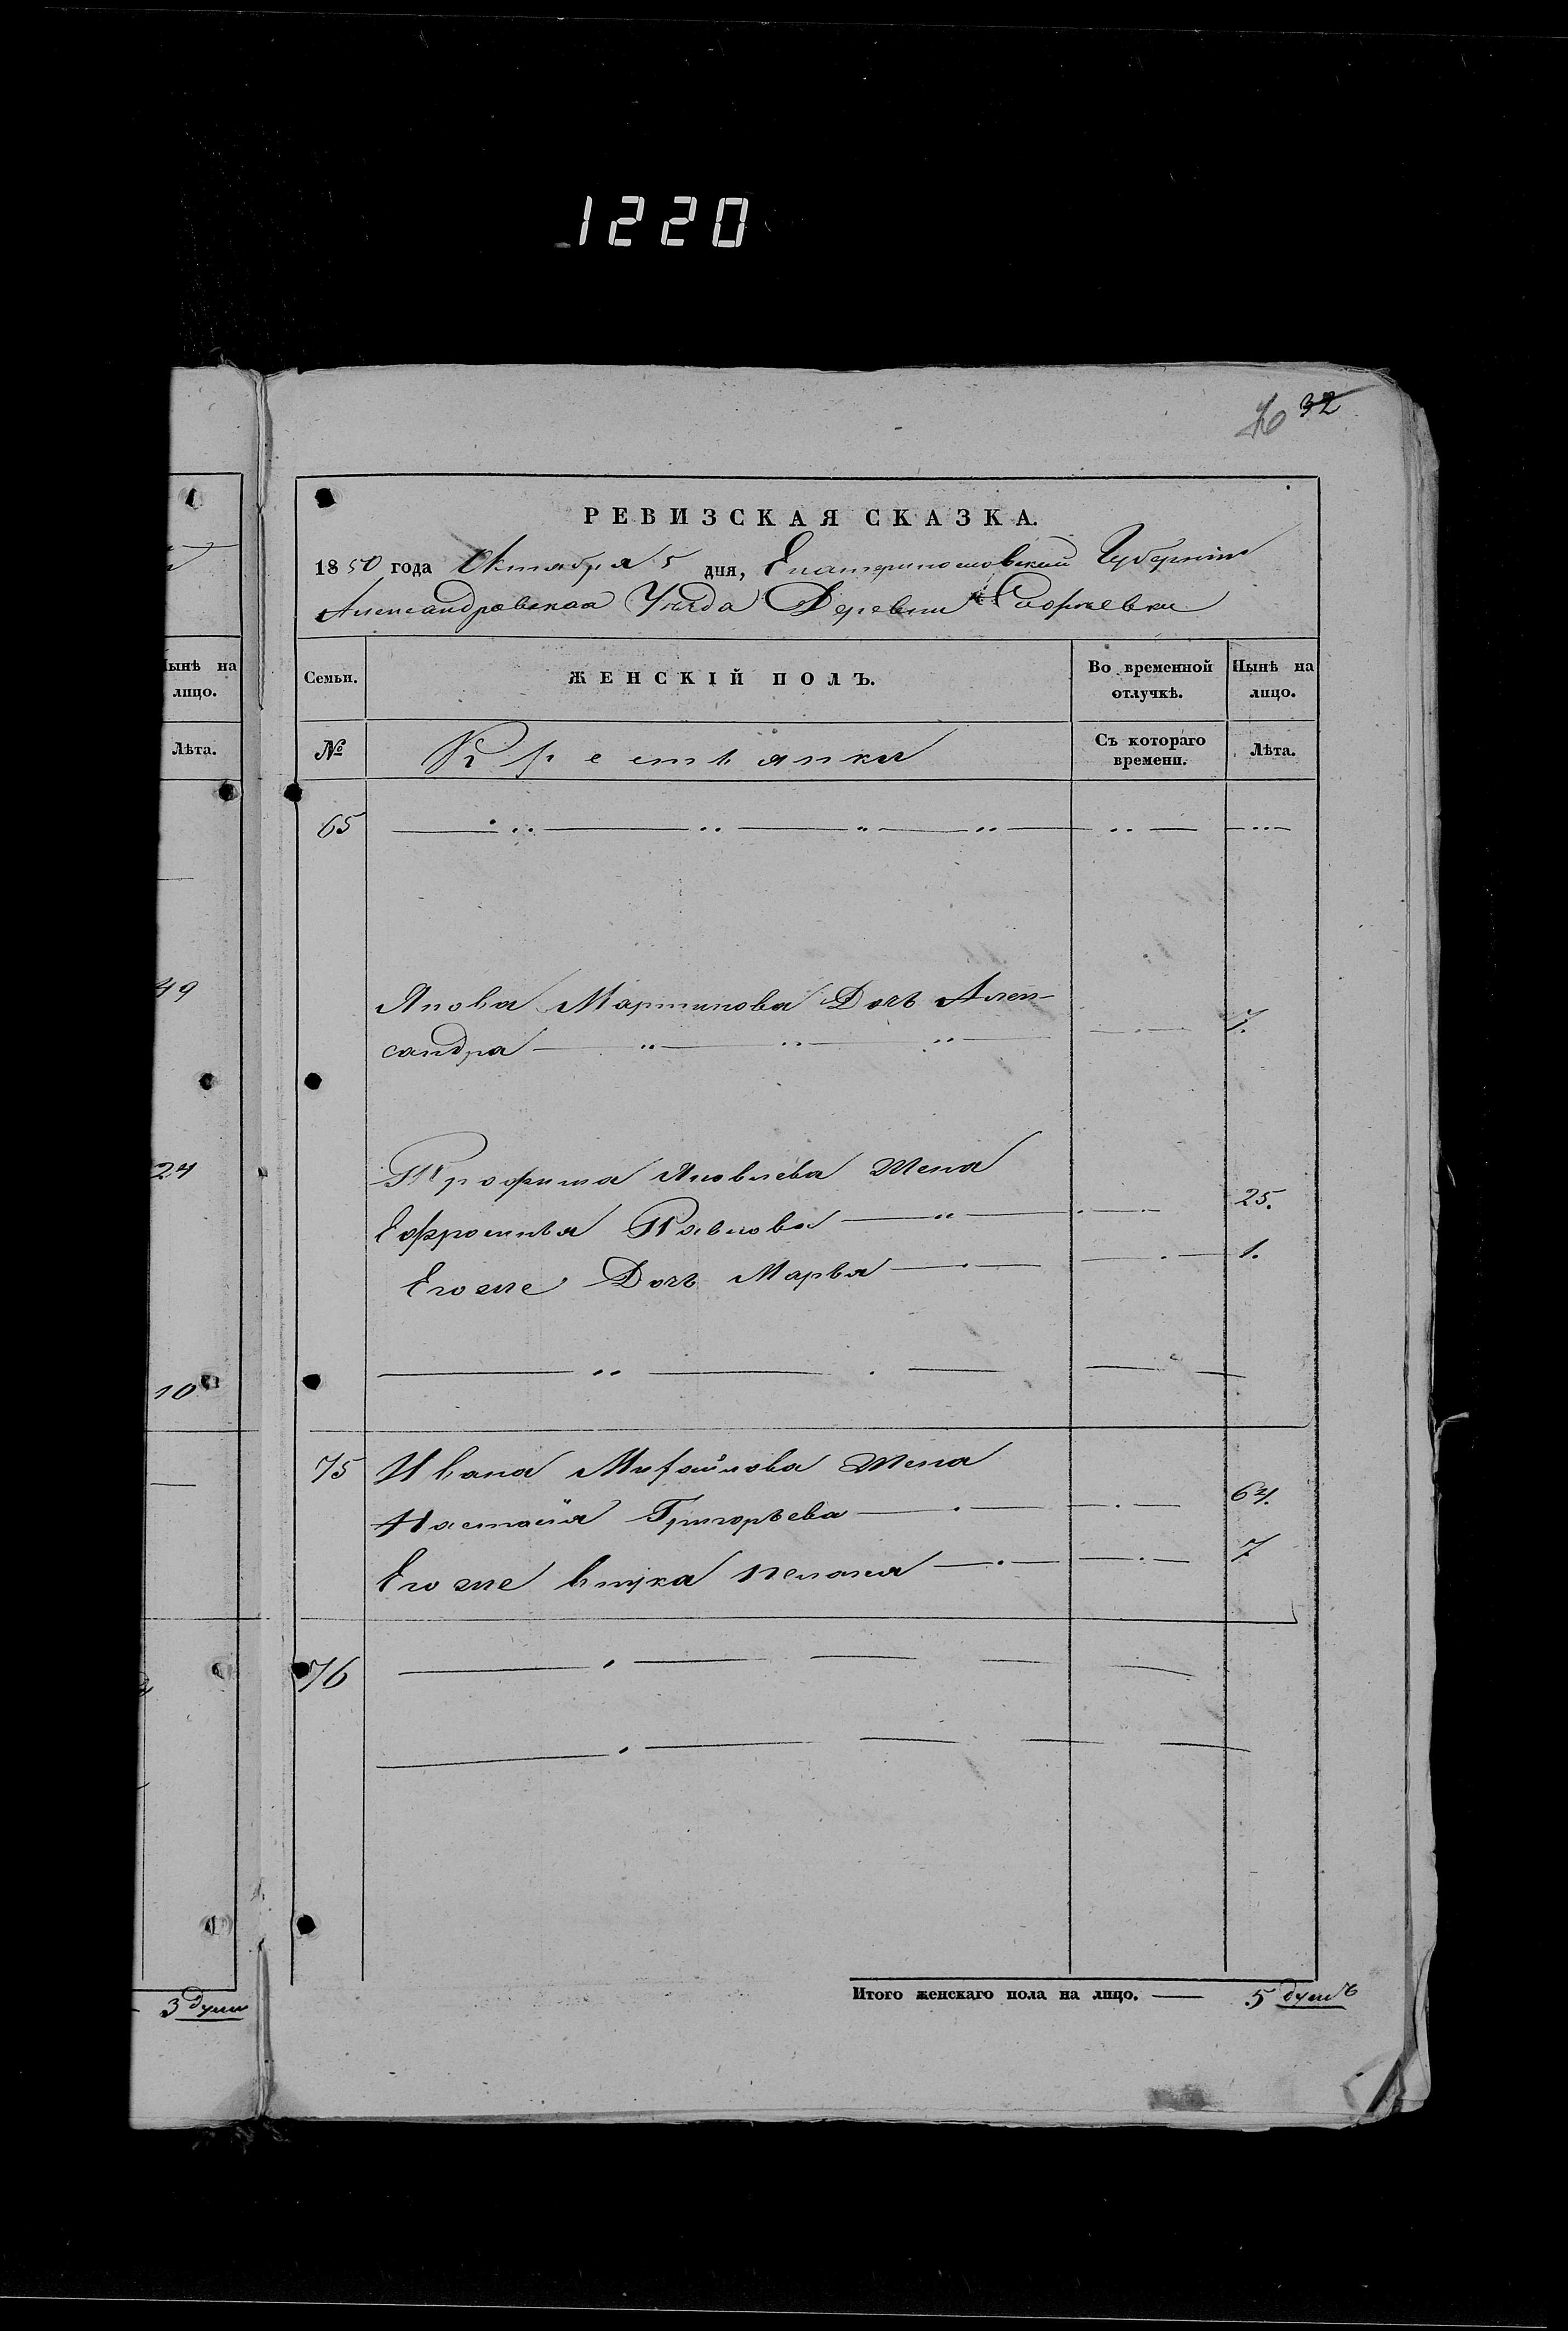 1220
32
РЕВИЗСКАЯ СКАЗКА.
1850 года Октября 5 дня, Екатеринославской Губернiи
Александровскаго Уѣзда Деревни
Нынѣ на лицо.
Лѣта.
49
24
10
3 души
Семьи.
ЖЕНСКІЙ ПОЛЪ.
Во временной отлучкѣ.
Нынѣ на лицо.
№
Крестьянки
Съ котораго времени.
Лѣта.
65
Якова Мартинова Дочь Алек-
сандра 7.
Трофима Яковлева Жена
Ефросинья Павлова 25.
Его же Дочь Марья 1.
75 Ивана Михайлова Жена
Настасія Григорьева 64.
Его же внука Пелагея 7
76
Итого женскаго пола на лицо. 5 душъ